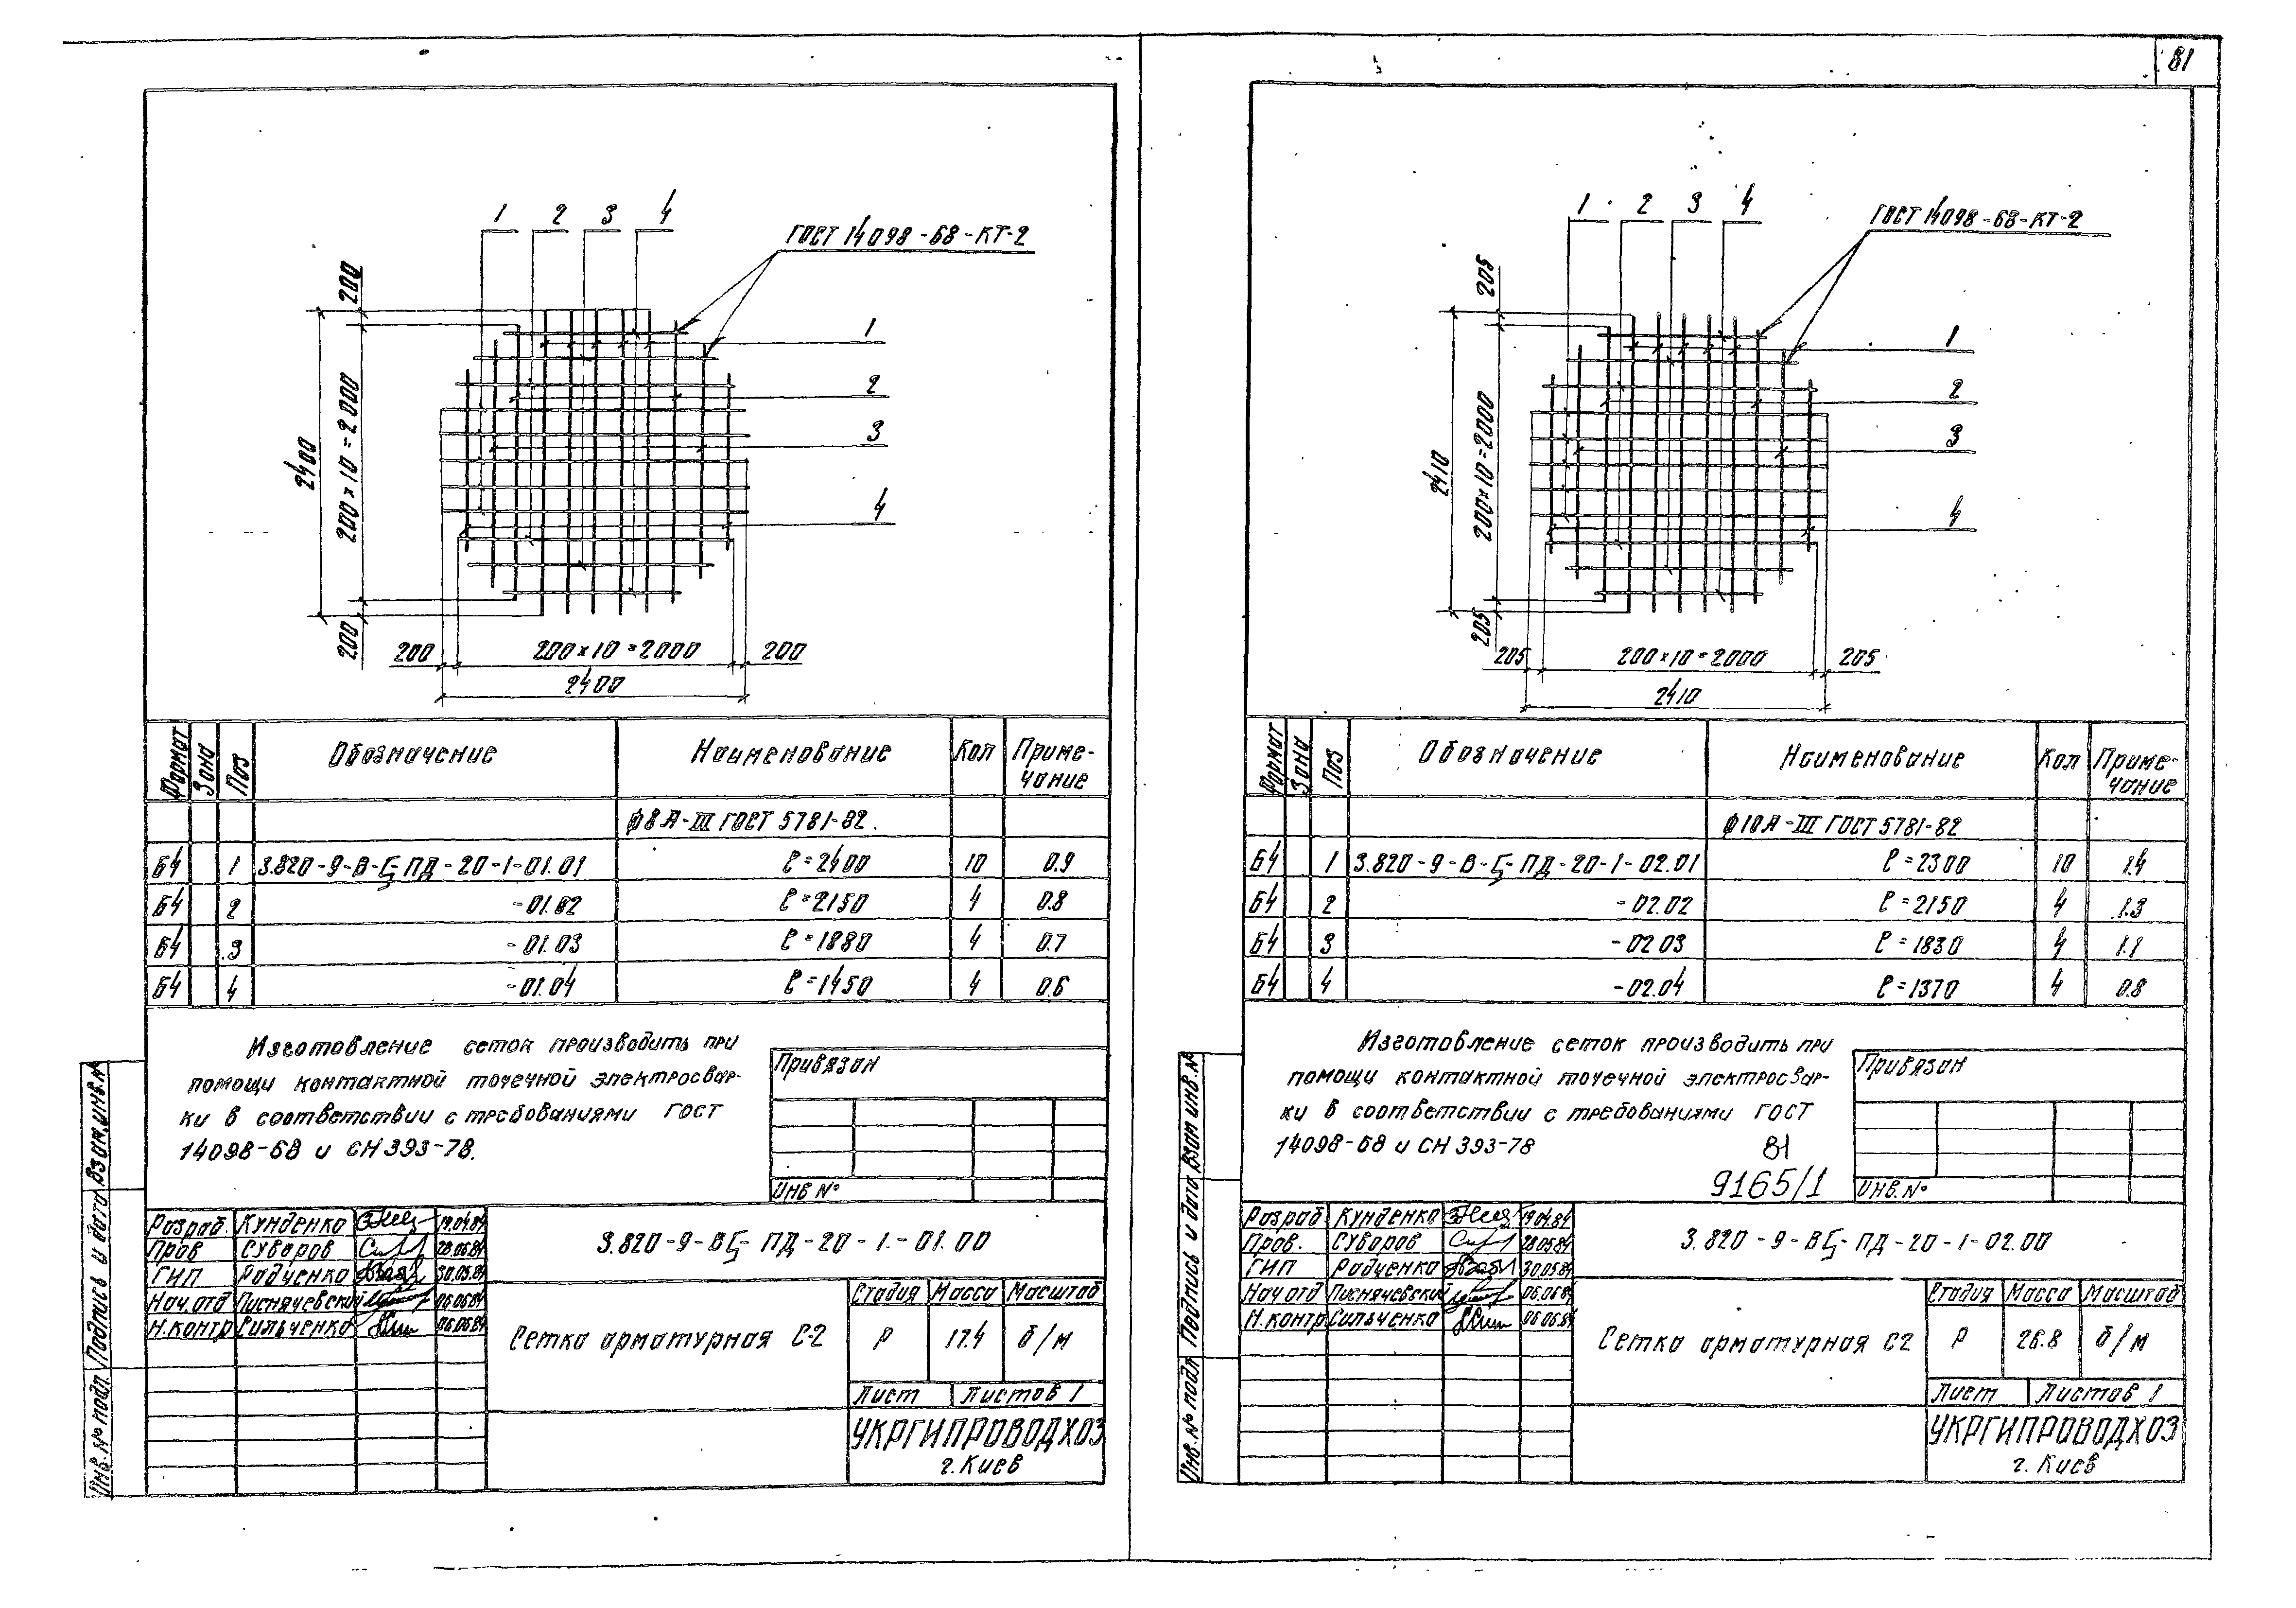 81
1 2 3 4
ГОСТ 14098-68-КТ-2
200
2400
200×10=2000
200
1
2
3
4
200 200×10=2000 200
2400
Формат Зона Поз Обозначение Наименование Кол Приме-
чание
ф8А-III ГОСТ 5781-82.
БЧ 1 3.820-9-В-Ц-ПД-20-1-01.01 ℓ=2400 10 0.9
БЧ 2 -01.02 ℓ=2150 4 0.8
БЧ 3 -01.03 ℓ=1880 4 0.7
БЧ 4 -01.04 ℓ=1450 4 0.6
Изготовление сеток производить при
помощи контактной точечной электросвар-
ки в соответствии с требованиями ГОСТ
14098-68 и СН 393-78.
Привязан
ИНВ №
Разраб. Кунденко 19.04.84
Пров Суворов 28.05.84
ГИП Радченко 30.05.84
Нач.отд Писнячевский 06.06.84
Н.контр Сильченко 06.06.84
3.820-9-ВЦ-ПД-20-1-01.00
Сетка арматурная С-2
Стадия Масса Масштаб
Р 17.4 б/м
Лист Листов 1
УКРГИПРОВОДХОЗ
г. Киев
Инв.№ подл. Подпись и дата Взам.инв.№
1 2 3 4
ГОСТ 14098-68-КТ-2
205
2410
200×10=2000
205
1
2
3
4
205 200×10=2000 205
2410
Формат Зона Поз Обозначение Наименование Кол Приме-
чание
ф10А-III ГОСТ 5781-82
БЧ 1 3.820-9-В-Ц-ПД-20-1-02.01 ℓ=2300 10 1.4
БЧ 2 -02.02 ℓ=2150 4 1.3
БЧ 3 -02.03 ℓ=1830 4 1.1
БЧ 4 -02.04 ℓ=1370 4 0.8
Изготовление сеток производить при
помощи контактной точечной электросвар-
ки в соответствии с требованиями ГОСТ
14098-68 и СН 393-78
81
9165/1
Привязан
ИНВ.№
Разраб Кунденко 19.04.84
Пров. Суворов 28.05.84
ГИП Радченко 30.05.84
Нач отд Писнячевский 06.06.84
Н.контр Сильченко 06.06.84
3.820-9-ВЦ-ПД-20-1-02.00
Сетка арматурная С2
Стадия Масса Масштаб
Р 26.8 б/м
Лист Листов 1
УКРГИПРОВОДХОЗ
г. Киев
Инв.№ подл Подпись и дата Взам инв.№